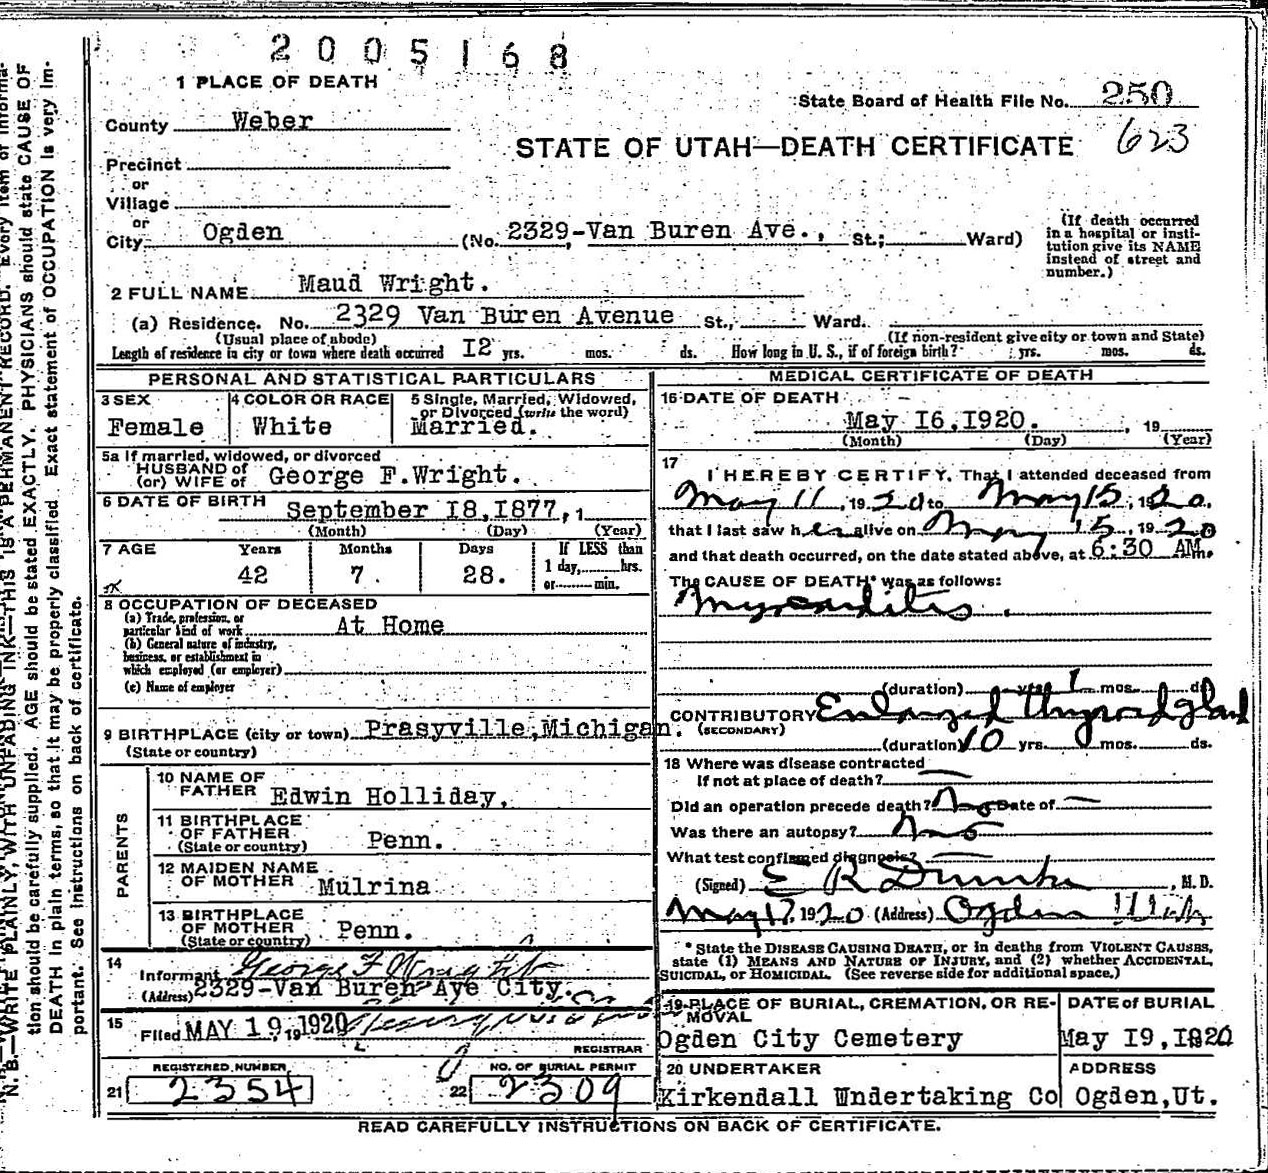 2005168
1 PLACE OF DEATH
State Board of Health File No. 250
County Weber
623
STATE OF UTAH—DEATH CERTIFICATE
Precinct
or
Village
or
City Ogden (No. 2329-Van Buren Ave., St.; Ward)
(If death occurred in a hospital or insti-
tution give its NAME
instead of street and
number.)
2 FULL NAME Maud Wright.
(a) Residence. No. 2329 Van Buren Avenue St., Ward.
(Usual place of abode) (If non-resident give city or town and State)
Length of residence in city or town where death occurred I2 yrs. mos. ds. How long in U. S., if of foreign birth? yrs. mos. ds.
PERSONAL AND STATISTICAL PARTICULARS
3 SEX
Female
4 COLOR OR RACE
White
5 Single, Married, Widowed,
or Divorced (write the word)
Married.
5a If married, widowed, or divorced
HUSBAND of
(or) WIFE of George F.Wright.
6 DATE OF BIRTH September I8,I877, 1
(Month) (Day) (Year)
7 AGE Years Months Days If LESS than
42 7. 28. 1 day, hrs.
or min.
8 OCCUPATION OF DECEASED
(a) Trade, profession, or
particular kind of work At Home
(b) General nature of industry,
business, or establishment in
which employed (or employer)
(c) Name of employer
9 BIRTHPLACE (city or town) Prasyville,Michigan.
(State or country)
PARENTS
10 NAME OF
FATHER Edwin Holliday.
11 BIRTHPLACE
OF FATHER
(State or country) Penn.
12 MAIDEN NAME
OF MOTHER Mulrina
13 BIRTHPLACE
OF MOTHER
(State or country) Penn.
14
Informant George F Wright
(Address) 2329-Van Buren Ave City.
15
Filed MAY 19, 19 1920
REGISTRAR
REGISTERED NUMBER
21 2354
NO. OF BURIAL PERMIT
22 2309
MEDICAL CERTIFICATE OF DEATH
16 DATE OF DEATH
May I6,I920. , 19
(Month) (Day) (Year)
17
I HEREBY CERTIFY, That I attended deceased from
May 11, 1920 to May 15, 1920,
that I last saw her alive on May 15, 1920
and that death occurred, on the date stated above, at 6:30 AM.
The CAUSE OF DEATH* was as follows:
Myocarditis.
(duration) yrs. 1 mos. ds.
CONTRIBUTORY Enlarged Thyroid gland
(SECONDARY)
(duration) 10 yrs. 0 mos. ds.
18 Where was disease contracted
If not at place of death? —
Did an operation precede death? No Date of —
Was there an autopsy? No
What test confirmed diagnosis? —
(Signed) E R Dumke, M.D.
May 17, 1920 (Address) Ogden Utah
* State the DISEASE CAUSING DEATH, or in deaths from VIOLENT CAUSES,
state (1) MEANS AND NATURE OF INJURY, and (2) whether ACCIDENTAL,
SUICIDAL, or HOMICIDAL. (See reverse side for additional space.)
19 PLACE OF BURIAL, CREMATION, OR RE-
MOVAL
Ogden City Cemetery
DATE of BURIAL
May I9,I920
20 UNDERTAKER
Kirkendall Undertaking Co
ADDRESS
Ogden,Ut.
READ CAREFULLY INSTRUCTIONS ON BACK OF CERTIFICATE.
N. B.—WRITE PLAINLY, WITH UNFADING INK—THIS IS A PERMANENT RECORD. Every item of informa-
tion should be carefully supplied. AGE should be stated EXACTLY. PHYSICIANS should state CAUSE OF
DEATH in plain terms, so that it may be properly classified. Exact statement of OCCUPATION is very im-
portant. See instructions on back of certificate.